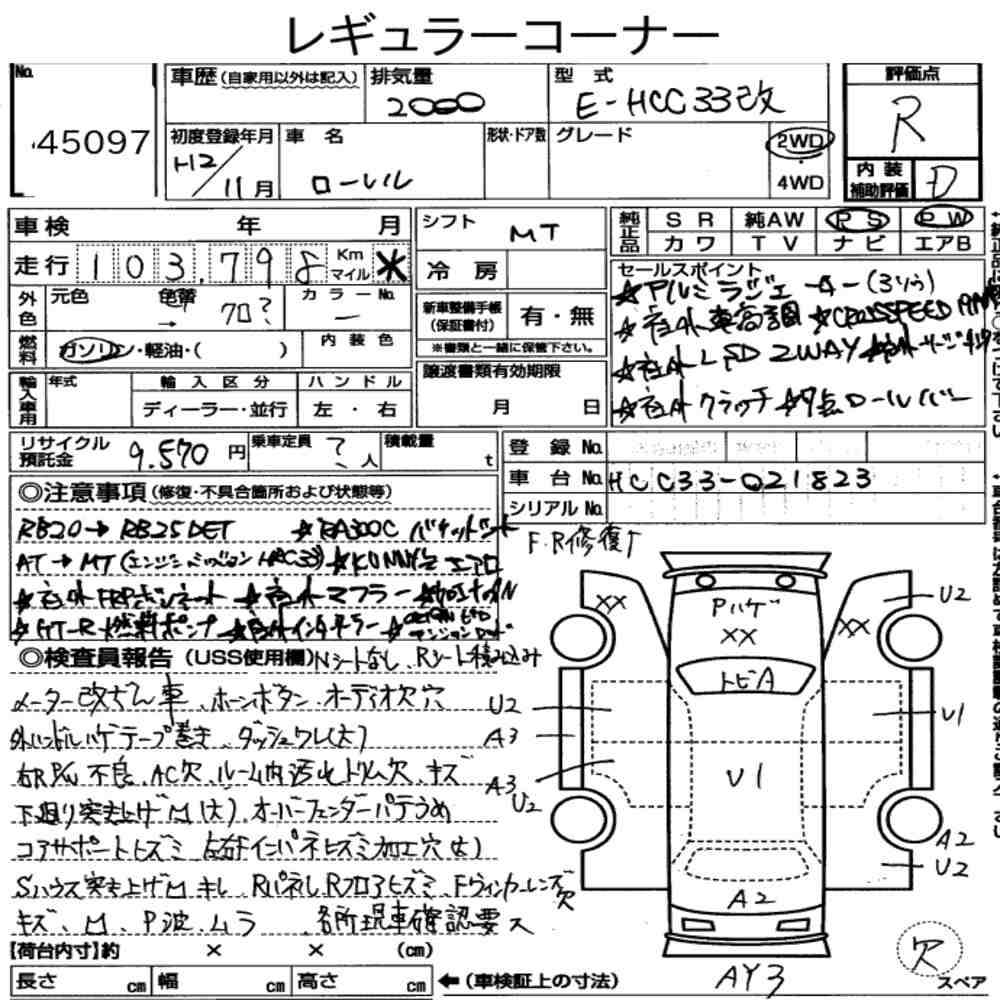 レギュラーコーナー
No. 45097
車歴(自家用以外は記入) 排気量 2000 型式 E-HCC33改 評価点 R
初度登録年月 H2/11月 車名 ローレル 形状・ドア数 グレード 2WD 4WD 内装補助評価 D
車検 年 月
走行 103,798 Km マイル *
外色 元色 色替 → クロ? カラーNo. ー
燃料 ガソリン・軽油・( ) 内装色
輸入車用 年式 輸入区分 ディーラー・並行 ハンドル 左・右
シフト MT
冷房
新車整備手帳(保証書付) 有・無
※書類と一緒に保管下さい。
譲渡書類有効期限 月 日
純正品 SR 純AW PS PW
カワ TV ナビ エアB
セールスポイント
★アルミラジエーター(3ソウ)
★社外車高調 ★CROSSPEED
★社外LSD 2WAY
★社外クラッチ ★7点ロールバー
リサイクル預託金 9,570円 乗車定員 ?人 積載量 t
登録No.
車台No. HCC33-021823
シリアルNo.
◎注意事項(修復・不具合箇所および状態等)
RB20→RB25DET ★RA300C バケットシート
AT→MT(エンジンミッション HCC33) ★KUNNYZ エアロ
★社外FRPボンネット ★社外マフラー
★GT-R燃料ポンプ ★社外インタークーラー
◎検査員報告(USS使用欄) Nシートなし、Rシート積み込み
メーター改ざん車、ホーンボタン、オーディオ欠穴
外ハンドルハゲテープ巻き、ダッシュワレ(大)
右R P/W不良、AC欠、ルーム内活ヒトリム欠、キズ
下廻り突き上げM(大)、オーバーフェンダーパテうめ
コアサポートヒズミ 左右Fインパネヒズミ加工穴(大)
Sハウス突き上げM キレ、Rパネル、Rフロアヒズミ、Fウィンカーレンズ欠
キズ、M、P波、ムラ 各所現車確認要ス
【荷台内寸】約 × × (cm)
長さ cm 幅 cm 高さ cm ←(車検証上の寸法)
F.R修復
XX
Pハゲ
XX
XX
U2
トビA
U2
A3
A3
U2
U1
U1
A2
U2
A2
AY3
欠
スペア